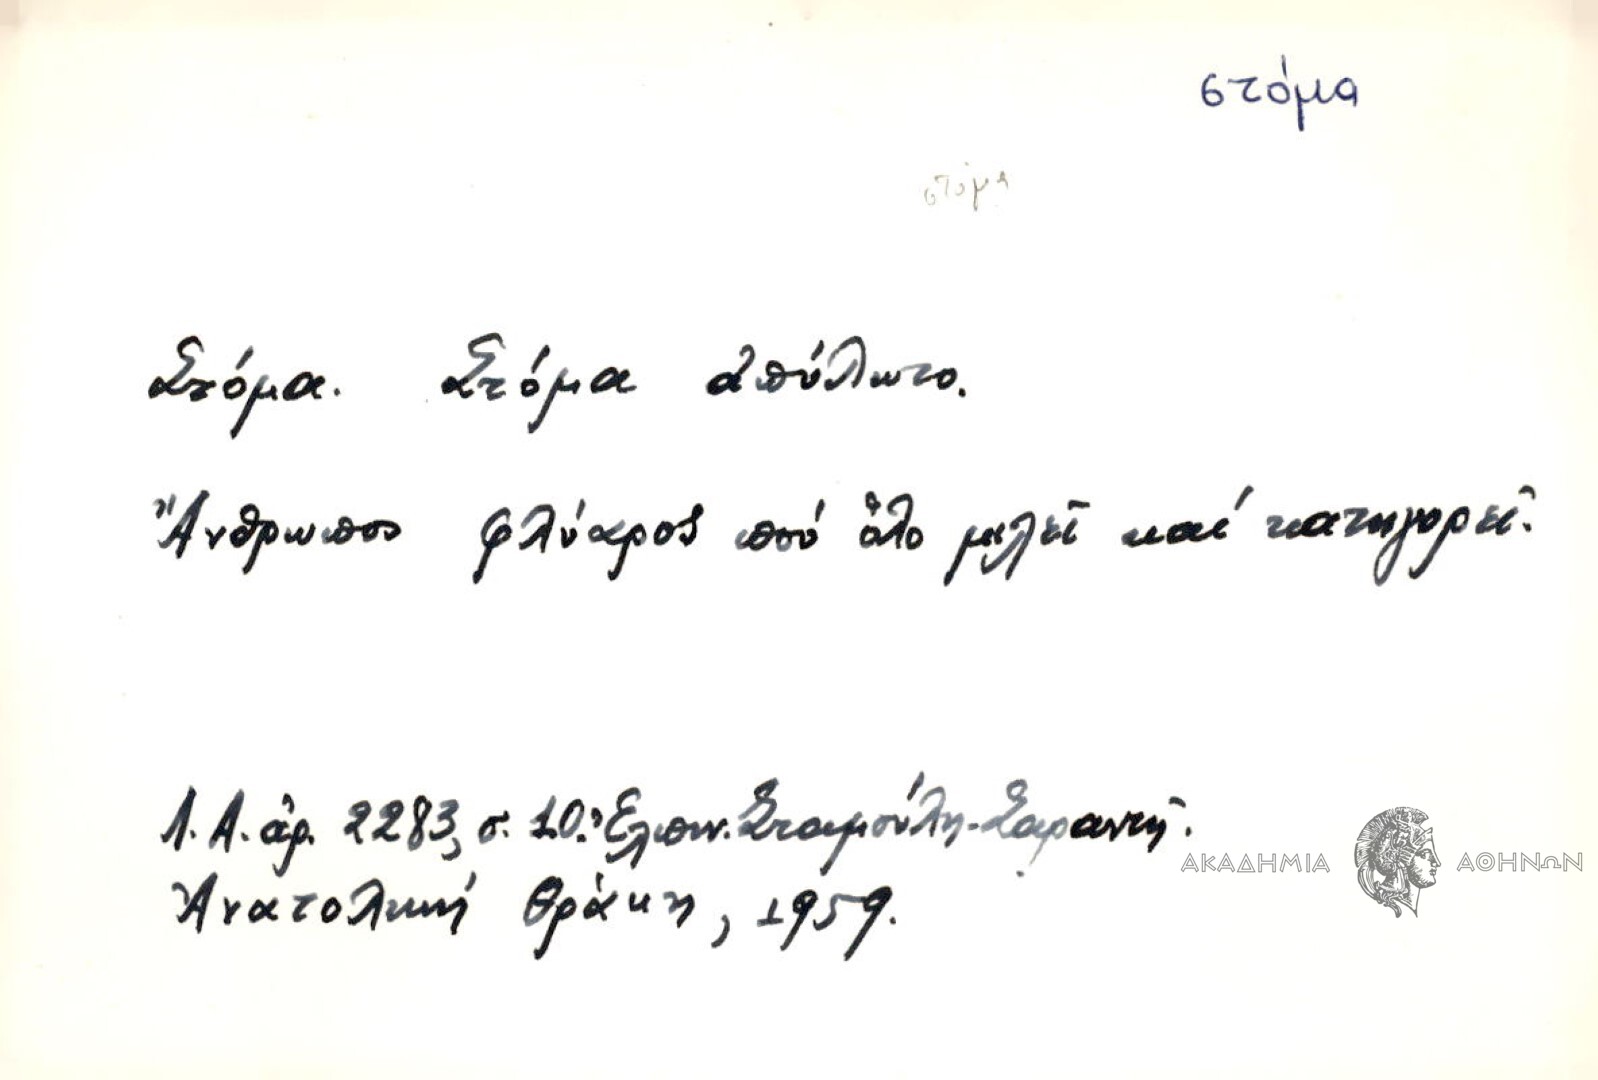 στόμα
στόμα
Στόμα. Στόμα ἀπύλωτο.
Ἄνθρωπος φλύαρος πού ὅλο μιλεῖ καί κατηγορεῖ.
Λ.Α. ἀρ. 2283, σ. 10. Ἐλπιν. Σταμούλη-Σαραντῆ.
Ἀνατολική Θράκη, 1959.
ΑΚΑΔΗΜΙΑ ΑΘΗΝΩΝ